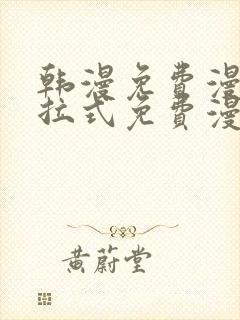 韩漫免费漫
拉式免费漫
黄蔚堂